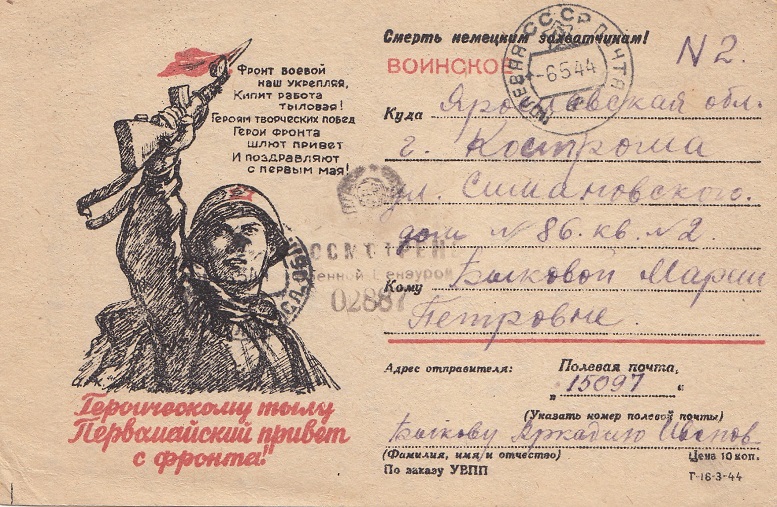 Смерть немецким захватчикам!
N 2.
ВОИНСКОЕ
ПОЛЕВАЯ СССР ПОЧТА
-6544
Фронт воевой
наш укрепляя,
Кипит работа
тыловая!
Героям творческих побед
Герои фронта
шлют привет
И поздравляют
с первым мая!
Куда Ярославская обл.
г. Кострома
ул. Симановского.
дом N 86. кв. N2.
Кому Быковой Марии
Петровне.
ПРОСМОТРЕНО
Военной Цензурой
02887
Героическому тылу
Первомайский привет
с фронта!
Адрес отправителя: Полевая почта,
„ 15097 “
(Указать номер полевой почты)
Быкову Аркадию Иванов
(Фамилия, имя и отчество) Цена 10 коп.
По заказу УВПП Г-16-3-44